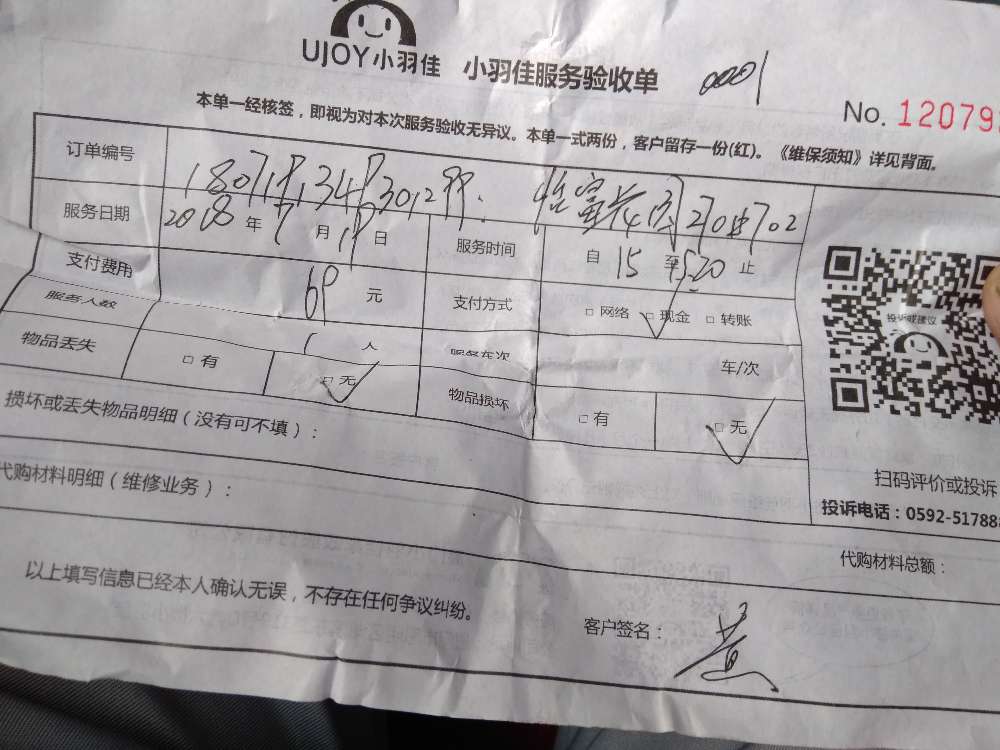 UJOY小羽佳 小羽佳服务验收单 0001
No. 12079
本单一经核签，即视为对本次服务验收无异议。本单一式两份，客户留存一份(红)。《维保须知》详见背面。
订单编号
服务日期 2018 年 7 月 19 日 服务时间 自 15 至 1520 止
支付费用 69 元 支付方式 □ 网络 □ 现金 □ 转账
服务人数 1 人 服务车次 车/次
物品丢失 □ 有 □ 无 物品损坏 □ 有 □ 无
投诉或建议
损坏或丢失物品明细（没有可不填）：
扫码评价或投诉
代购材料明细（维修业务）：
投诉电话：0592-51788
代购材料总额：
以上填写信息已经本人确认无误，不存在任何争议纠纷。
客户签名： 黄